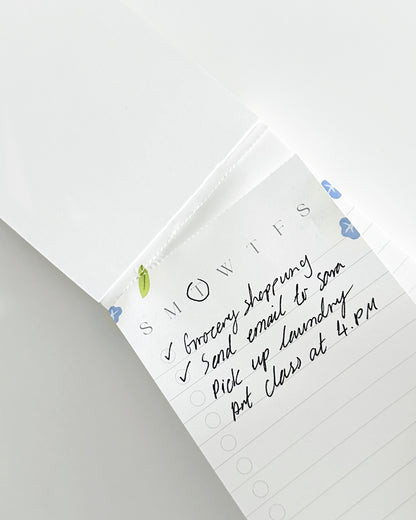 S M T W T F S
✓ Grocery shopping
✓ Send email to Sara
Pick up laundry
Art class at 4.PM